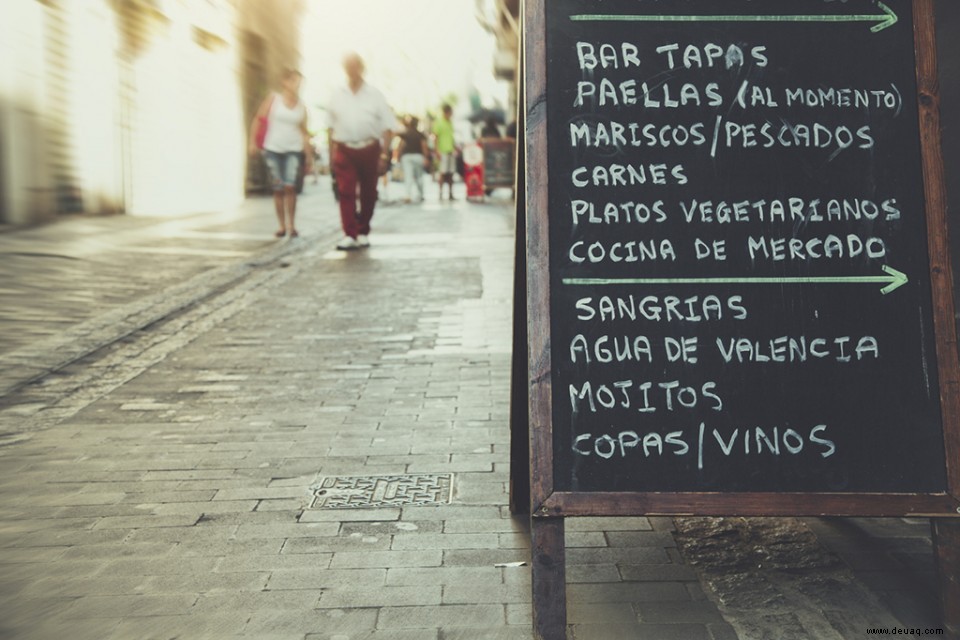 BAR TAPAS
PAELLAS (AL MOMENTO)
MARISCOS/PESCADOS
CARNES
PLATOS VEGETARIANOS
COCINA DE MERCADO
SANGRIAS
AGUA DE VALENCIA
MOJITOS
COPAS/VINOS
www.deuaq.com